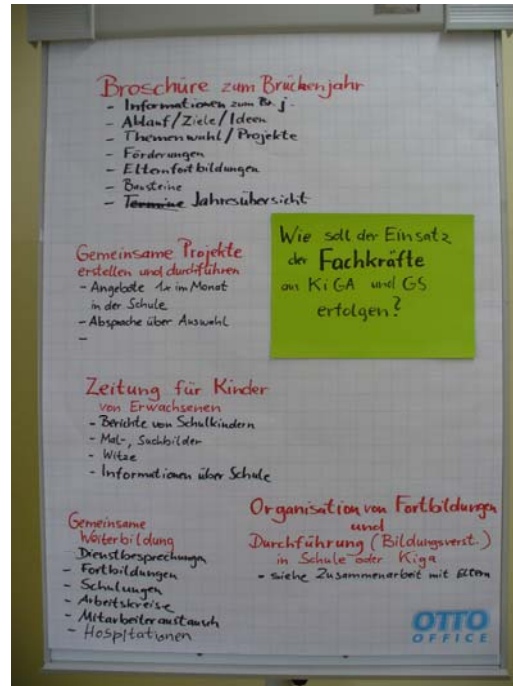 Broschüre zum Brückenjahr
- Informationen zum Br. j.
- Ablauf/Ziele/Ideen
- Themenwahl/Projekte
- Förderungen
- Elternfortbildungen
- Bausteine
- Termine Jahresübersicht
Gemeinsame Projekte
erstellen und durchführen
- Angebote 1x im Monat
in der Schule
- Absprache über Auswahl
-
Wie soll der Einsatz
der Fachkräfte
aus KiGA und GS
erfolgen?
Zeitung für Kinder
von Erwachsenen
- Berichte von Schulkindern
- Mal-, Suchbilder
- Witze
- Informationen über Schule
Gemeinsame
Weiterbildung
- Dienstbesprechungen
- Fortbildungen
- Schulungen
- Arbeitskreise
- Mitarbeiteraustausch
- Hospitationen
Organisation von Fortbildungen
und
Durchführung (Bildungsverst.)
in Schule oder Kiga
- siehe Zusammenarbeit mit Eltern
OTTO
OFFICE